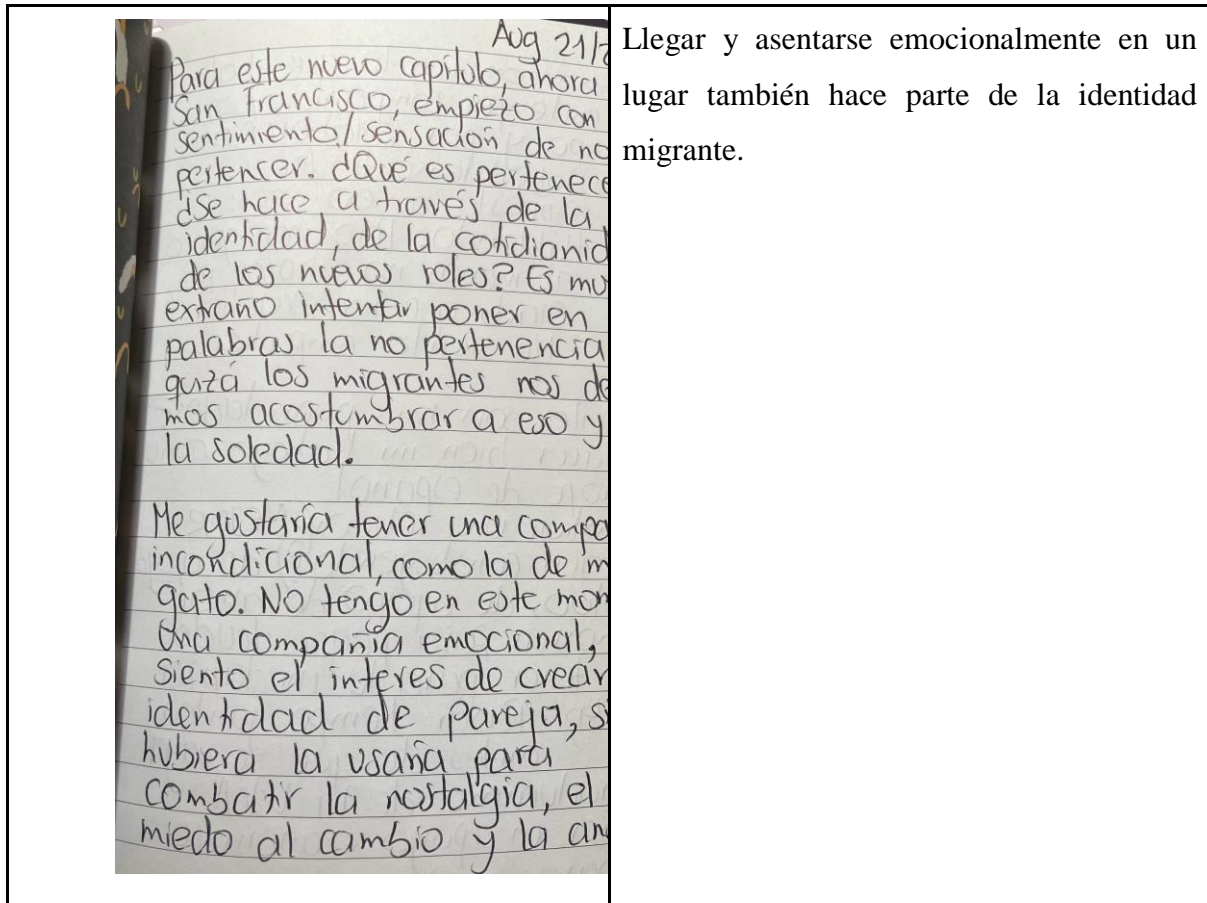 Aug 21/2
Para este nuevo capítulo, ahora
San Francisco, empiezo con
sentimiento/sensación de no
pertencer. ¿Qué es pertenece
¿Se hace a través de la
identidad, de la cotidianid
de los nuevos roles? Es mu
extraño intentar poner en
palabras la no pertenencia
quizá los migrantes nos de
mos acostumbrar a eso y
la soledad.
Me gustaría tener una compa
incondicional, como la de m
gato. No tengo en este mom
una compañía emocional,
siento el interes de crear
identidad de pareja, si
hubiera la usaría para
combatir la nostalgia, el
miedo al cambio y la an
Llegar y asentarse emocionalmente en un
lugar también hace parte de la identidad
migrante.